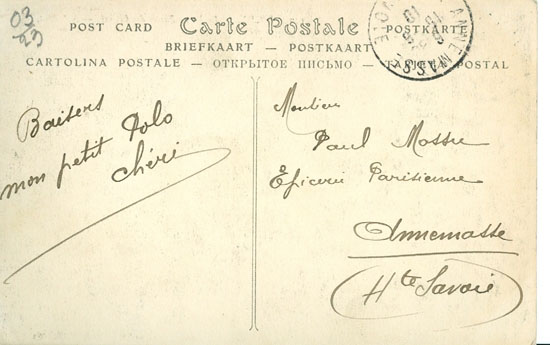 03
23
POST CARD Carte Postale POSTKARTE
BRIEFKAART — POSTKAART
CARTOLINA POSTALE — ОТКРЫТОЕ ПИСЬМО — TARJETA POSTAL
ANNEMASSE
Baisers
mon petit Polo
chéri
Monsieur
Paul
Epicerie Parisienne
Annemasse
Hte Savoie